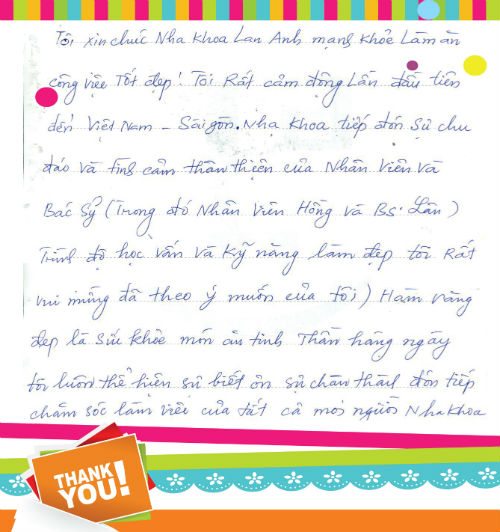 Tôi xin chúc Nha Khoa Lan Anh mạnh khỏe Làm ăn
công việc Tốt đẹp! Tôi Rất cảm động Lần đầu tiên
đến Việt Nam - Sàigòn. Nha khoa tiếp đón sự chu
đáo và tình cảm thân thiện của Nhân Viên và
Bác Sỹ (Trong đó Nhân viên Hồng và BS. Lân)
Trình độ học vấn và kỹ năng làm đẹp tôi Rất
vui mừng đã theo ý muốn của tôi) Hàm răng
đẹp là sức khỏe món ăn tinh Thần hàng ngày
tôi luôn thể hiện sự biết ơn sự chân thành đón tiếp
chăm sóc làm việc của tất cả mọi người Nha Khoa
THANK
YOU!